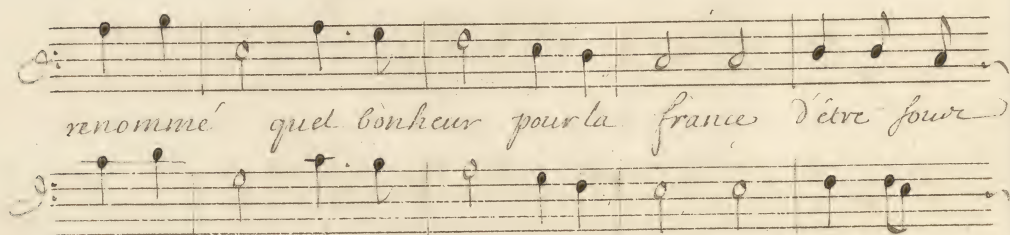 renommé quel bonheur pour la france d'être sous